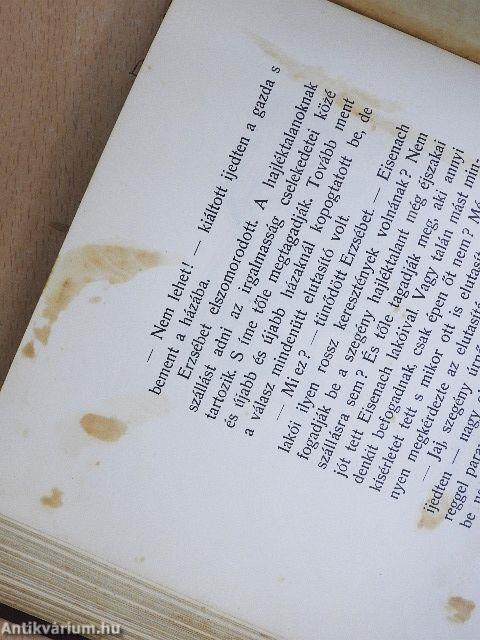 — Nem lehet! — kiáltott ijedten a gazda s
bement a házába.
Erzsébet elszomorodott. A hajléktalanoknak
szállást adni az irgalmasság cselekedetei közé
tartozik. S íme tőle megtagadják. Tovább ment
és újabb és újabb házaknál kopogtatott be, de
a válasz mindenütt elutasító volt.
— Mi ez? — tünődött Erzsébet. — Eisenach
lakói ilyen rossz keresztények volnának? Nem
fogadják be a szegény hajléktalant még éjszakai
szállásra sem? És tőle tagadják meg, aki annyi
jót tett Eisenach lakóival. Vagy talán mást min-
denkit befogadnak, csak épen őt nem?
kisérletet tett s mikor ott is
nyen megkérdezte az
— Jaj, szegény
ijedten — nagy
reggel
be
Antikvárium.hu